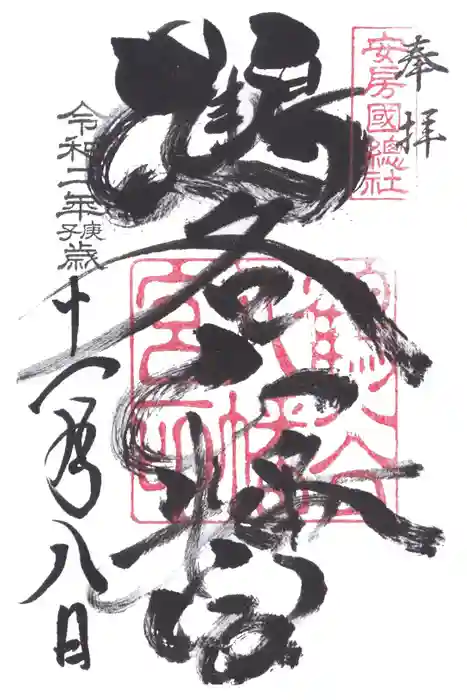 奉拝
安房國總社
鶴谷八幡宮
鶴谷八幡宮印
令和二年庚子歳
十一月八日